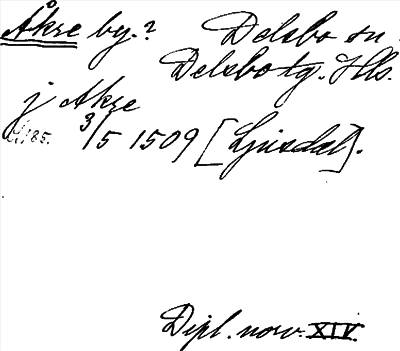 Åkre by.? Delsbo sn.
Delsbo tg. Hls.
j Akre
3/5 1509 [Ljusdal].
85.
Dipl. norv. XIV.